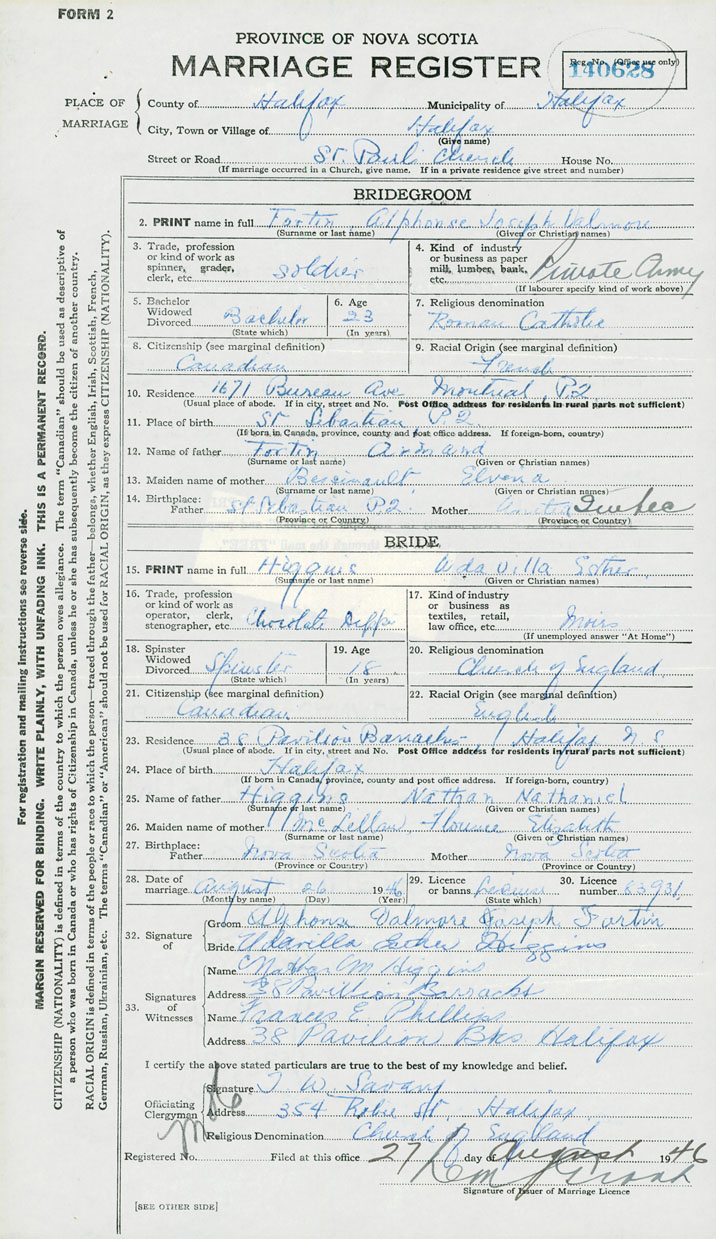 FORM 2
PROVINCE OF NOVA SCOTIA
MARRIAGE REGISTER
Reg. No. (Office use only)
140628
PLACE OF MARRIAGE
County of Halifax Municipality of Halifax
City, Town or Village of Halifax
(Give name)
Street or Road St. Paul's Church House No.
(If marriage occurred in a Church, give name. If in a private residence give street and number)
BRIDEGROOM
2. PRINT name in full Fortin Alphonse Joseph Valmore
(Surname or last name) (Given or Christian names)
3. Trade, profession or kind of work as spinner, grader, clerk, etc. soldier
4. Kind of industry or business as paper mill, lumber, bank, etc. Private Army
(If labourer specify kind of work above)
5. Bachelor Widowed Divorced Bachelor
(State which)
6. Age 23
(In years)
7. Religious denomination
Roman Catholic
8. Citizenship (see marginal definition)
Canadian
9. Racial Origin (see marginal definition)
French
10. Residence 1671 Bureau Ave Montreal, P.Q.
(Usual place of abode. If in city, street and No. Post Office address for residents in rural parts not sufficient)
11. Place of birth St. Sebastian P.Q.
(If born in Canada, province, county and post office address. If foreign-born, country)
12. Name of father Fortin Armand
(Surname or last name) (Given or Christian names)
13. Maiden name of mother Elvena
(Surname or last name) (Given or Christian names)
14. Birthplace: Father St Sebastian P.Q. Mother Quebec
(Province or Country) (Province or Country)
BRIDE
15. PRINT name in full Higgins Adavilla Esther
(Surname or last name) (Given or Christian names)
16. Trade, profession or kind of work as operator, clerk, stenographer, etc. Chocolate Dipper
17. Kind of industry or business as textiles, retail, law office, etc. Moirs
(If unemployed answer "At Home")
18. Spinster Widowed Divorced Spinster
(State which)
19. Age 18
(In years)
20. Religious denomination
Church of England
21. Citizenship (see marginal definition)
Canadian
22. Racial Origin (see marginal definition)
English
23. Residence 38 Pavilion Barracks, Halifax N.S.
(Usual place of abode. If in city, street and No. Post Office address for residents in rural parts not sufficient)
24. Place of birth Halifax
(If born in Canada, province, county and post office address. If foreign-born, country)
25. Name of father Higgins Nathan Nathaniel
(Surname or last name) (Given or Christian names)
26. Maiden name of mother McLellan Florence Elizabeth
(Surname or last name) (Given or Christian names)
27. Birthplace: Father Nova Scotia Mother Nova Scotia
(Province or Country) (Province or Country)
28. Date of marriage August 26 1946
(Month by name) (Day) (Year)
29. Licence or banns License
(State which)
30. Licence number 63931
32. Signature of
Groom Alphonse Valmore Joseph Fortin
Bride Adavilla Esther Higgins
33. Signatures of Witnesses
Name Nathan M Higgins
Address 38 Pavilion Barracks
Name Frances E Phillips
Address 38 Pavilion Bks Halifax
I certify the above stated particulars are true to the best of my knowledge and belief.
Officiating Clergyman
Signature T. W. Savary
Address 354 Robie St, Halifax
Religious Denomination Church of England
Registered No. Filed at this office 27 day of August 1946
Signature of Issuer of Marriage Licence
[SEE OTHER SIDE]
For registration and mailing instructions see reverse side.
MARGIN RESERVED FOR BINDING. WRITE PLAINLY, WITH UNFADING INK. THIS IS A PERMANENT RECORD.
CITIZENSHIP (NATIONALITY) is defined in terms of the country to which the person owes allegiance. The term "Canadian" should be used as descriptive of
a person who was born in Canada or who has rights of Citizenship in Canada, unless he or she has subsequently become the citizen of another country.
RACIAL ORIGIN is defined in terms of the people or race to which the person—traced through the father—belongs, whether English, Irish, Scottish, French,
German, Russian, Ukrainian, etc. The terms "Canadian" or "American" should not be used for RACIAL ORIGIN, as they express CITIZENSHIP (NATIONALITY).